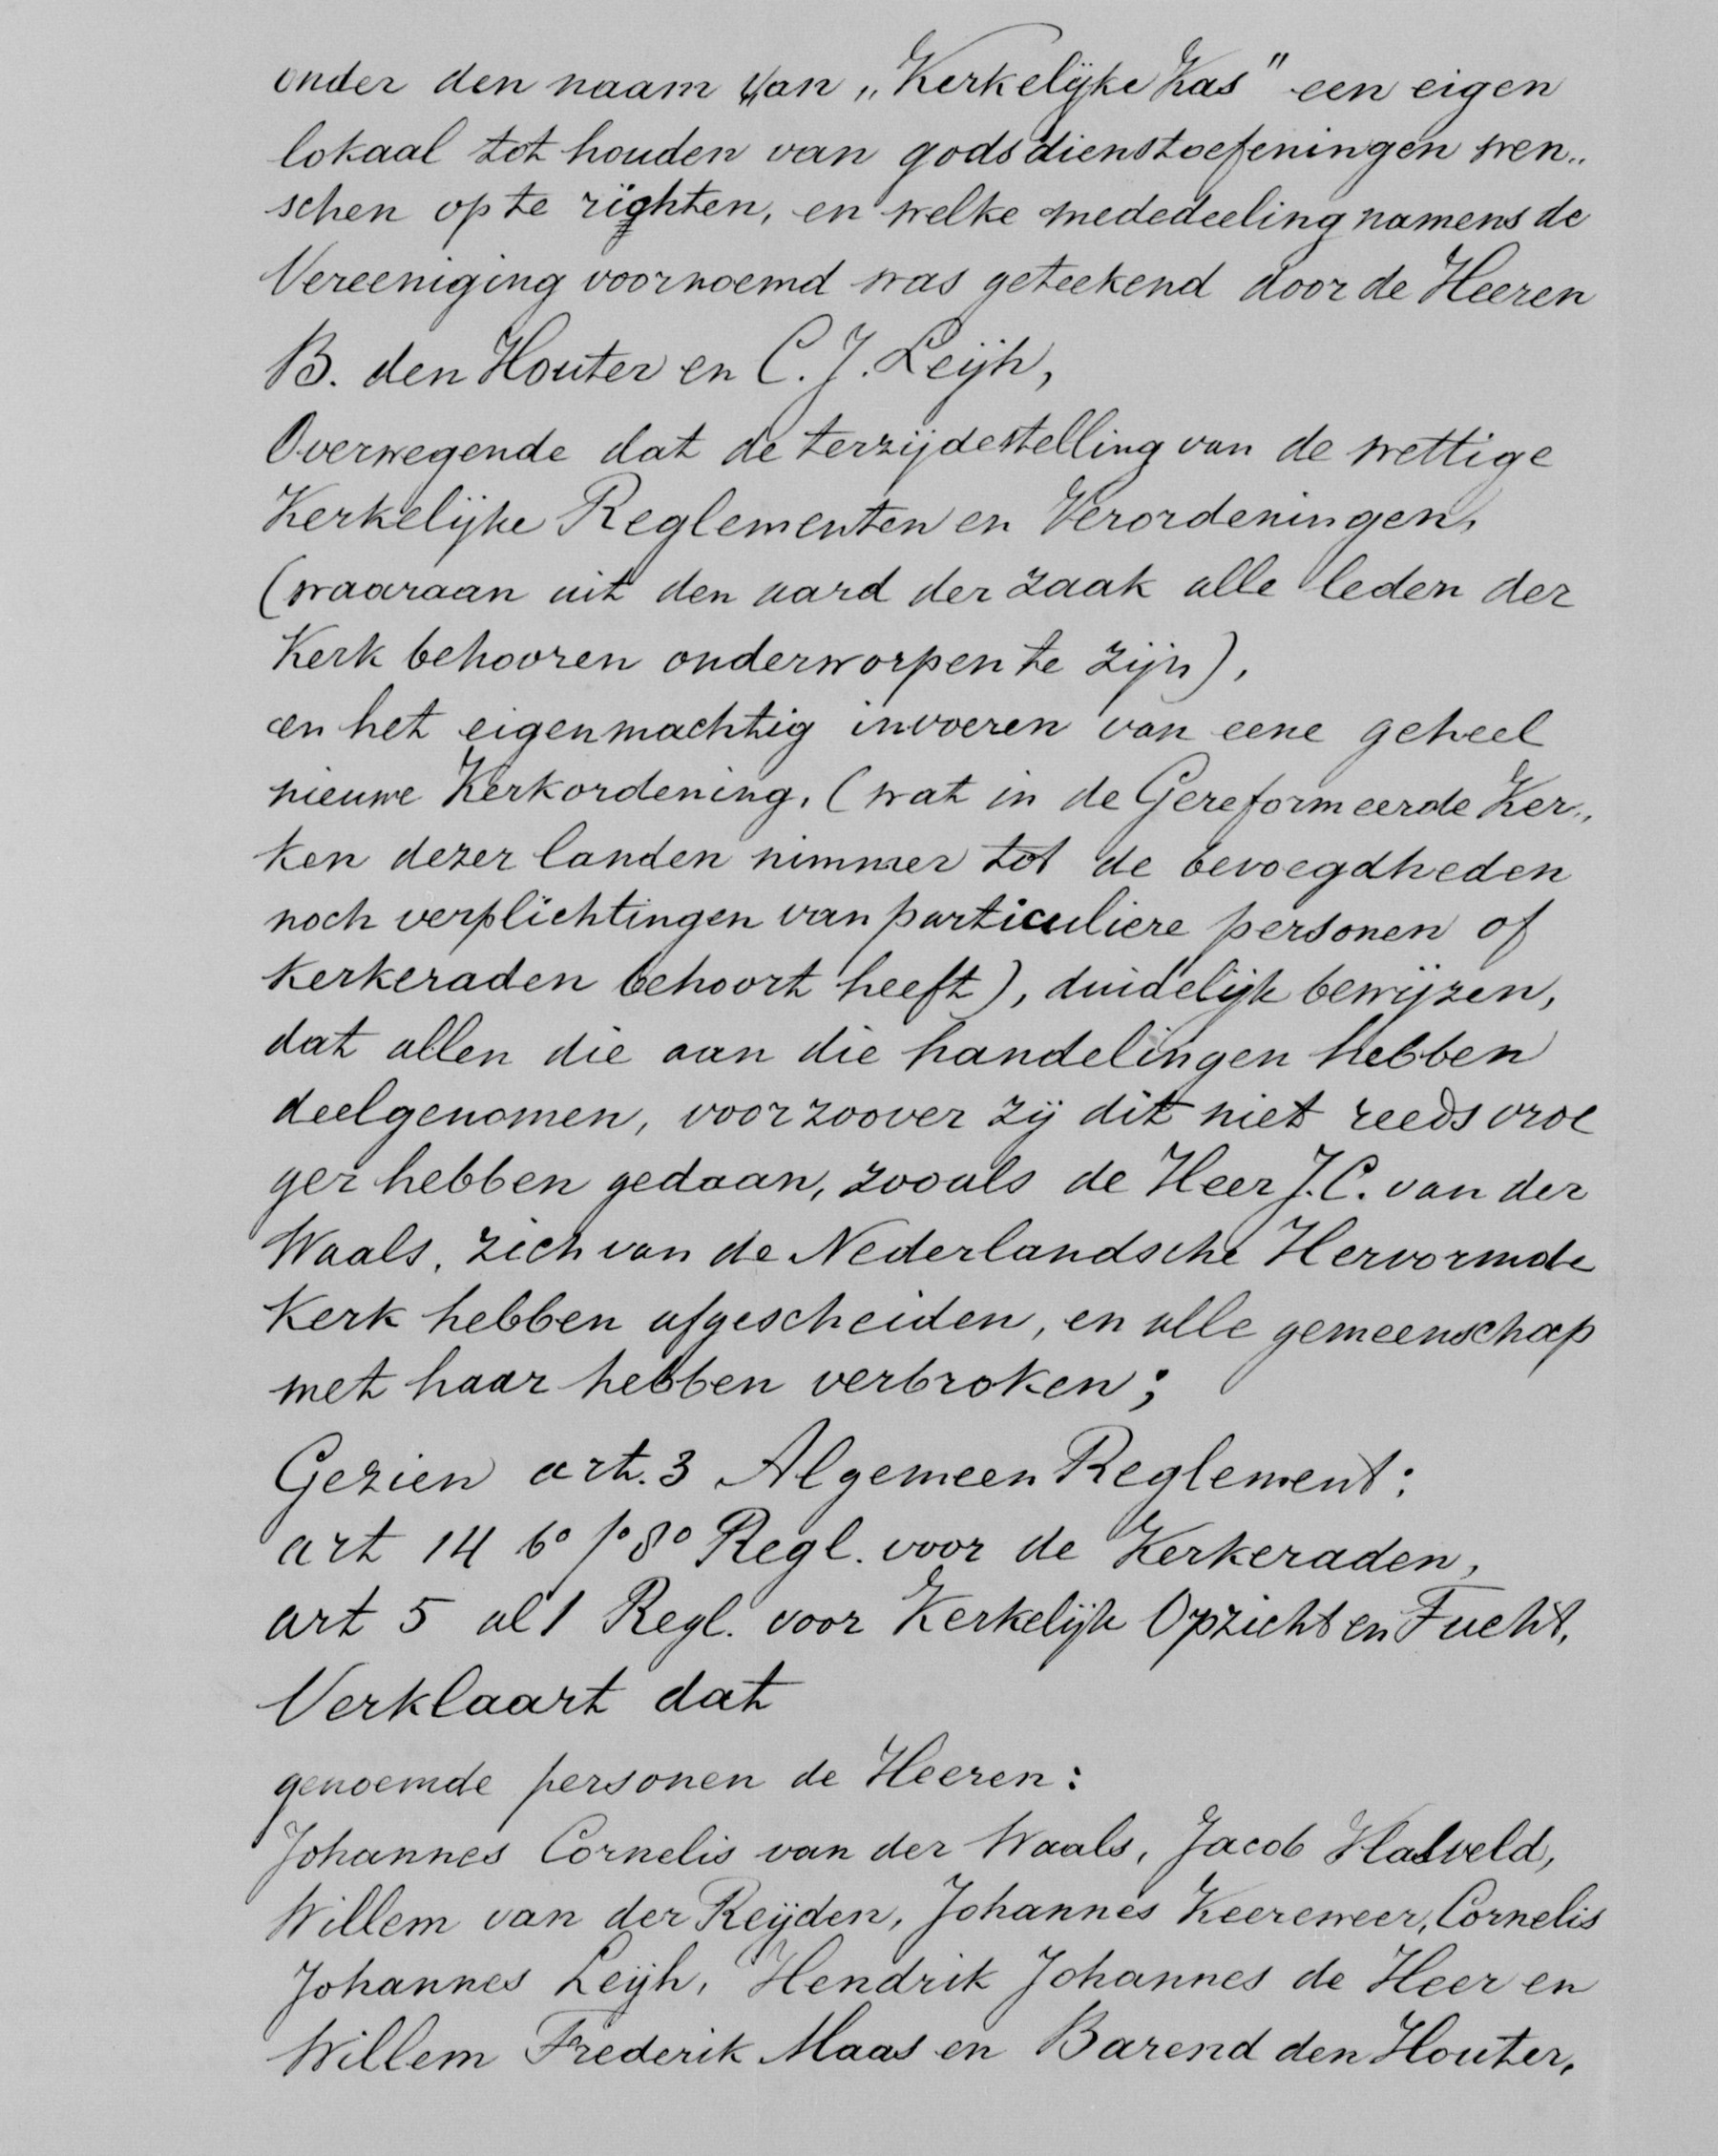 onder den naam van „Kerkelijke Kas" een eigen
lokaal tot houden van godsdienstoefeningen wen„
schen op te righten, en welke mededeeling namens de
Vereeniging voornoemd was geteekend door de Heeren
B. den Houter en C. J. Leijh,
Overwegende dat de terzijdestelling van de wettige
Kerkelijke Reglementen en Verordeningen,
(waaraan uit den aard der zaak alle leden der
Kerk behooren onderworpen te zijn),
en het eigenmachtig invoeren van eene geheel
nieuwe Kerkordening, (wat in de Gereformeerde Ker„
ken dezer landen nimmer tot de bevoegdheden
noch verplichtingen van particuliere personen of
Kerkeraden behoort heeft), duidelijk bewijzen,
dat allen die aan die handelingen hebben
deelgenomen, voorzoover zij dit niet reeds vroe
ger hebben gedaan, zooals de Heer J. C. van der
Waals, zich van de Nederlandsche Hervormde
Kerk hebben afgescheiden, en alle gemeenschap
met haar hebben verbroken;
Gezien art. 3 Algemeen Reglement:
art 14 6° 8° Regl. voor de Kerkeraden,
art 5 al 1 Regl. voor Kerkelijk Opzicht en Tucht,
Verklaart dat
genoemde personen de Heeren:
Johannes Cornelis van der Waals, Jacob Halveld,
Willem van der Reijden, Johannes Keereweer, Cornelis
Johannes Leijh, Hendrik Johannes de Heer en
Willem Frederik Maas en Barend den Houter,